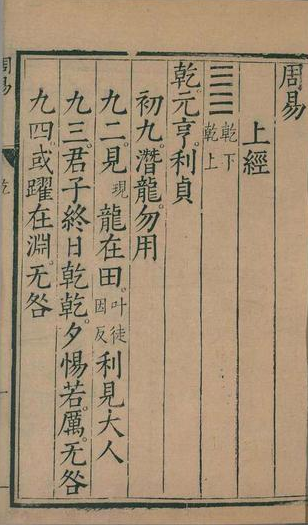 周易
上經
䷀ 乾下乾上
乾。元亨。利貞
初九。潛龍。勿用
九二。見現龍在田。叶徒因反利見大人
九三。君子終日乾乾。夕惕若。厲。无咎
九四。或躍在淵。无咎
周易
乾